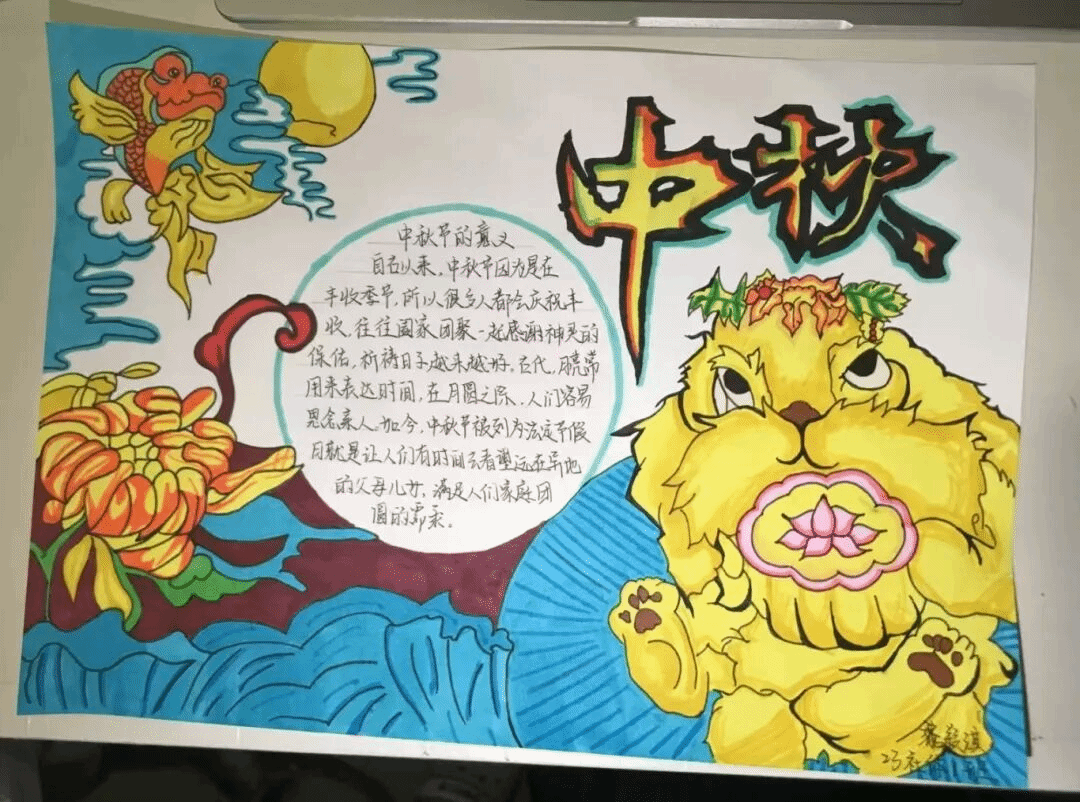 中秋
中秋节的意义
自古以来,中秋节因为是在
丰收季节,所以很多人都会庆祝丰
收,往往阖家团聚一起感谢神灵的
保佑,祈祷日子越来越好,古代,月亮常
用来表达时间,在月圆之际,人们容易
思念亲人。如今,中秋节被列为法定节假
日就是让人们有时间去看望远在异地
的父母儿女,满足人们家庭团
圆的需求。